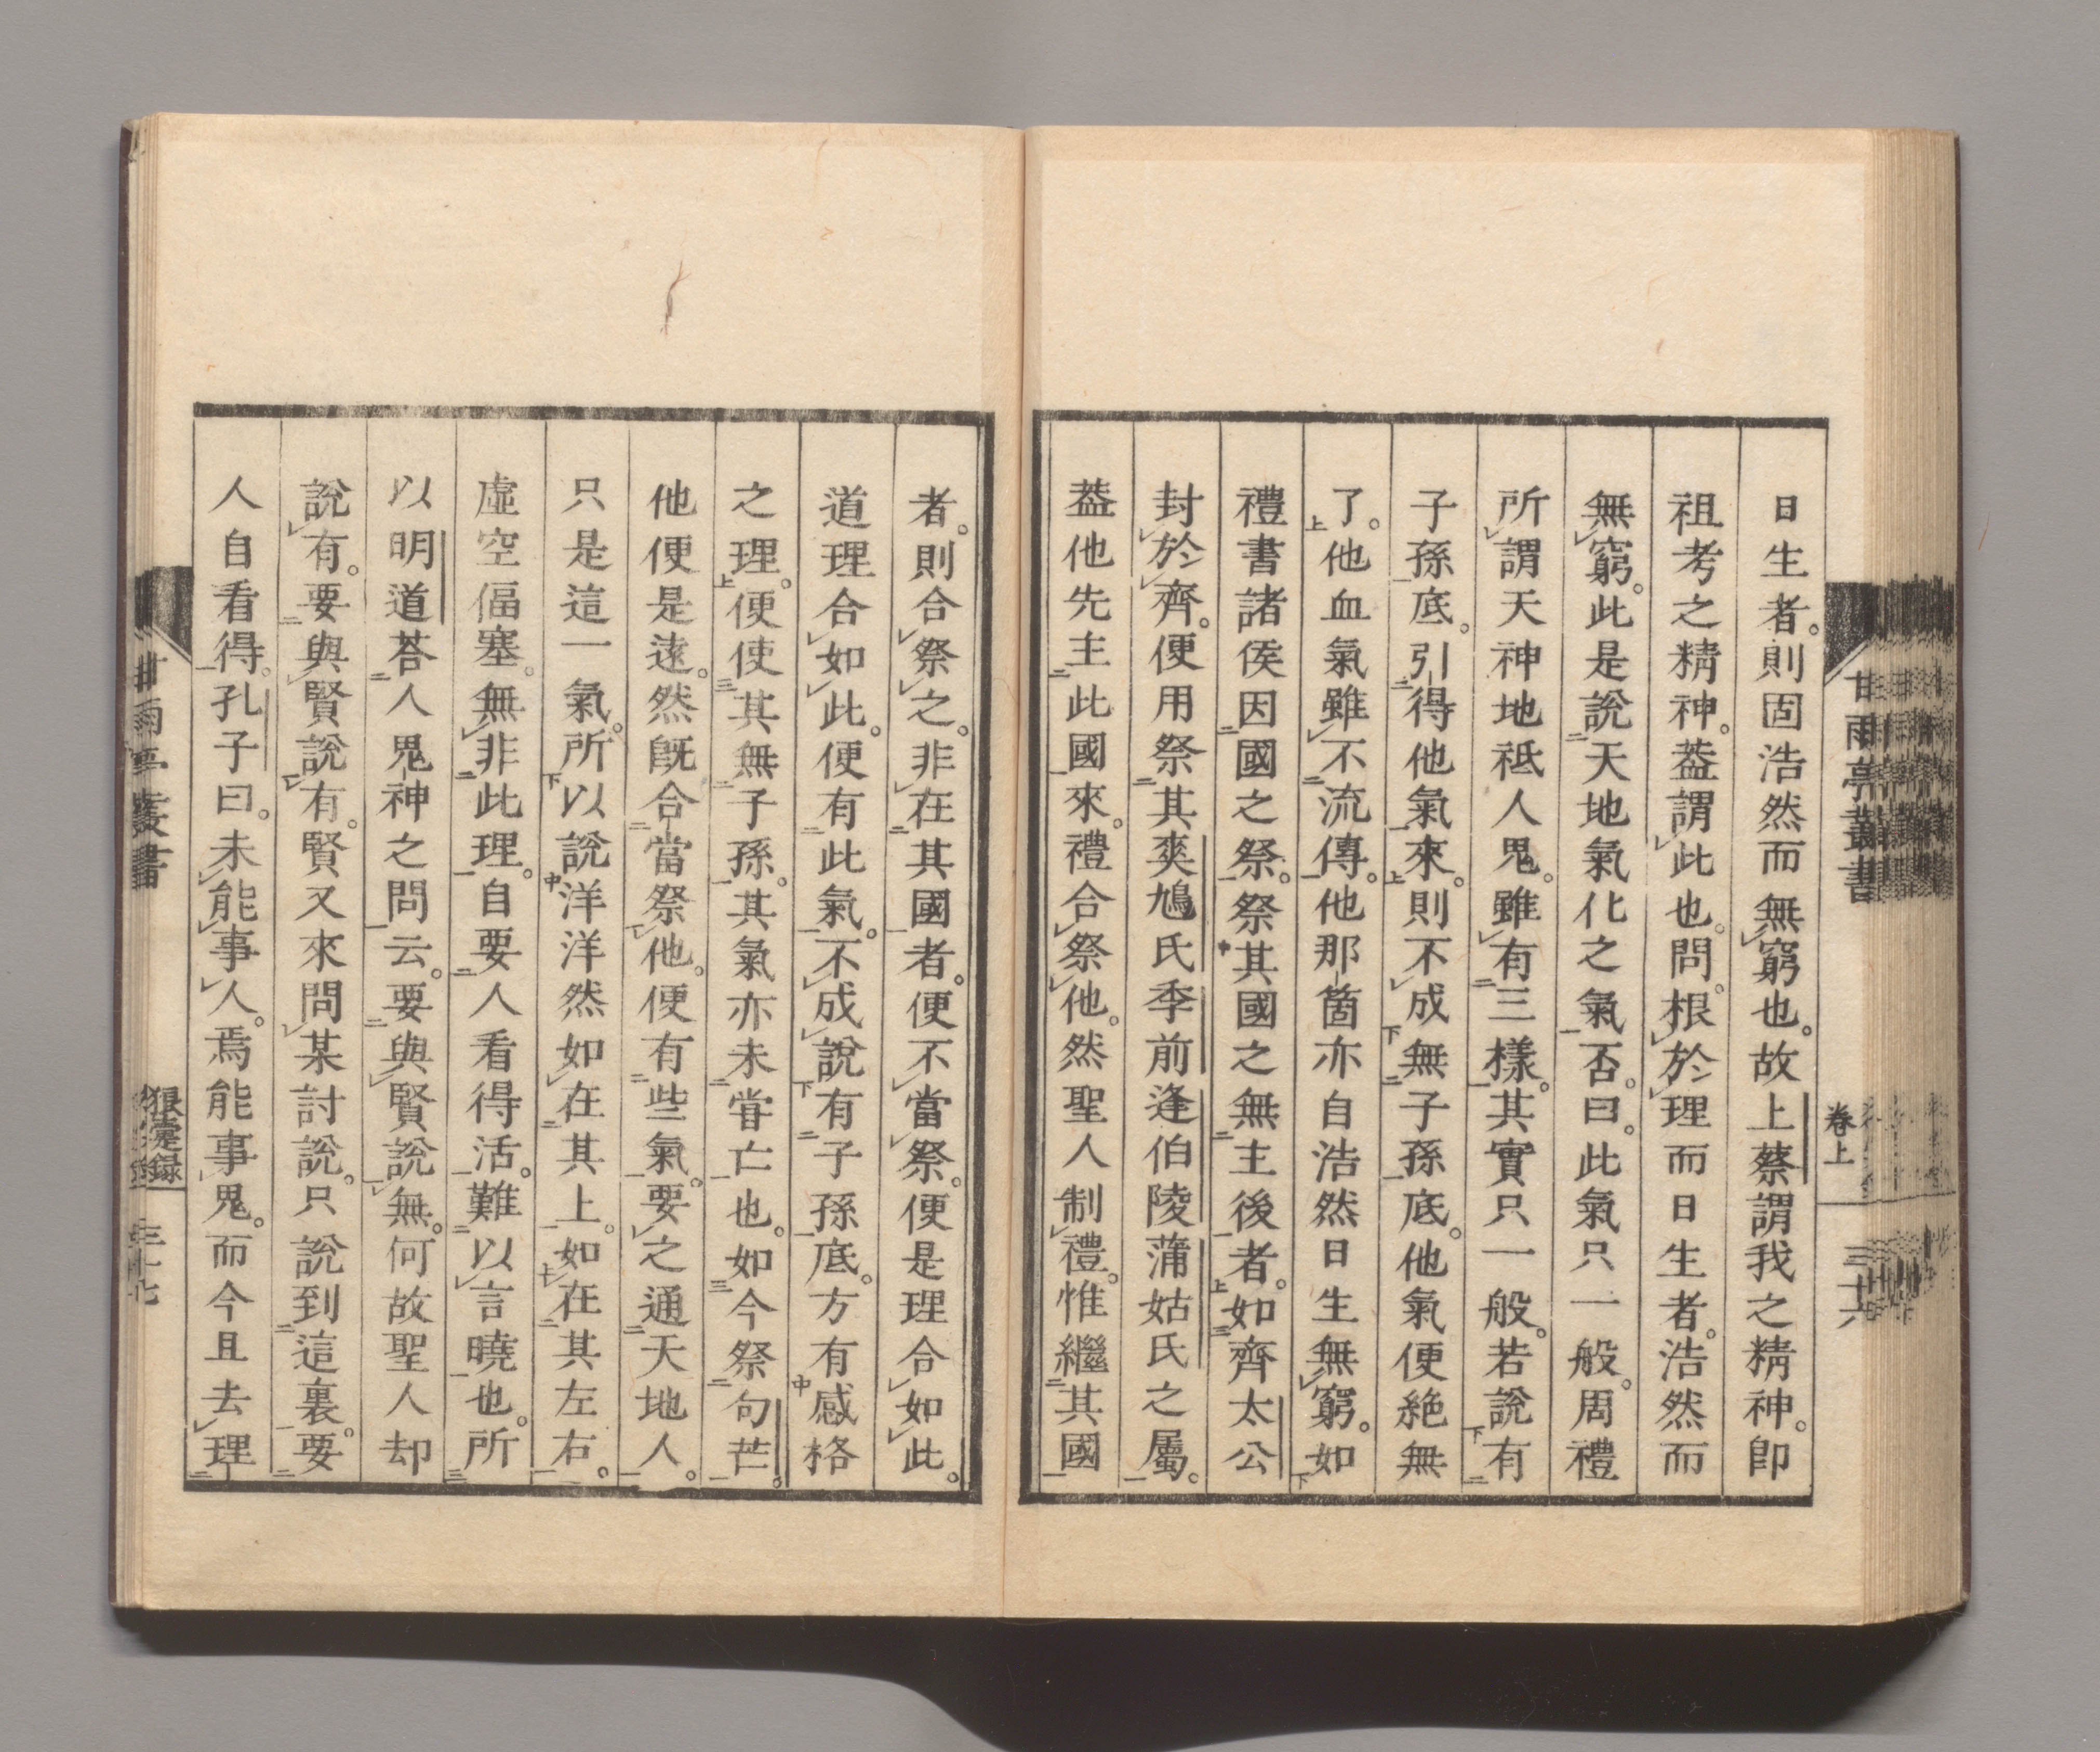 日生者。則固浩然而無窮也。故上蔡謂我之精神。卽
祖考之精神。葢謂此也。問。根於理而日生者。浩然而
無窮。此是說天地氣化之氣否。曰。此氣只一般。周禮
所謂天神地祗人鬼。雖有三樣。其實只一般。若說有
子孫底。引得他氣來。則不成無子孫底。他氣便絶無
了。他血氣雖不流傳。他那箇亦自浩然日生無窮。如
禮書諸侯因國之祭。祭其國之無主後者。如齊太公
封於齊。便用祭其爽鳩氏季前逢伯陵蒲姑氏之屬。
葢他先主此國來。禮合祭他。然聖人制禮。惟繼其國
甘雨亭叢書
卷上
三十六
者。則合祭之。非在其國者。便不當祭。便是理合如此。
道理合如此。便有此氣。不成說有子孫底。方有感格
之理。便使其無子孫。其氣亦未甞亡也。如今祭句芒。
他便是遠。然旣合當祭他。便有些氣。要之通天地人。
只是這一氣。所以說洋洋然如在其上。如在其左右。
虛空偪塞。無非此理。自要人看得活。難以言曉也。所
以明道荅人鬼神之問云。要與賢說無。何故聖人却
說有。要與賢說有。賢又來問某討說。只說到這裏。要
人自看得。孔子曰。未能事人。焉能事鬼。而今且去理
甘雨亭叢書
狼疐録
三十七